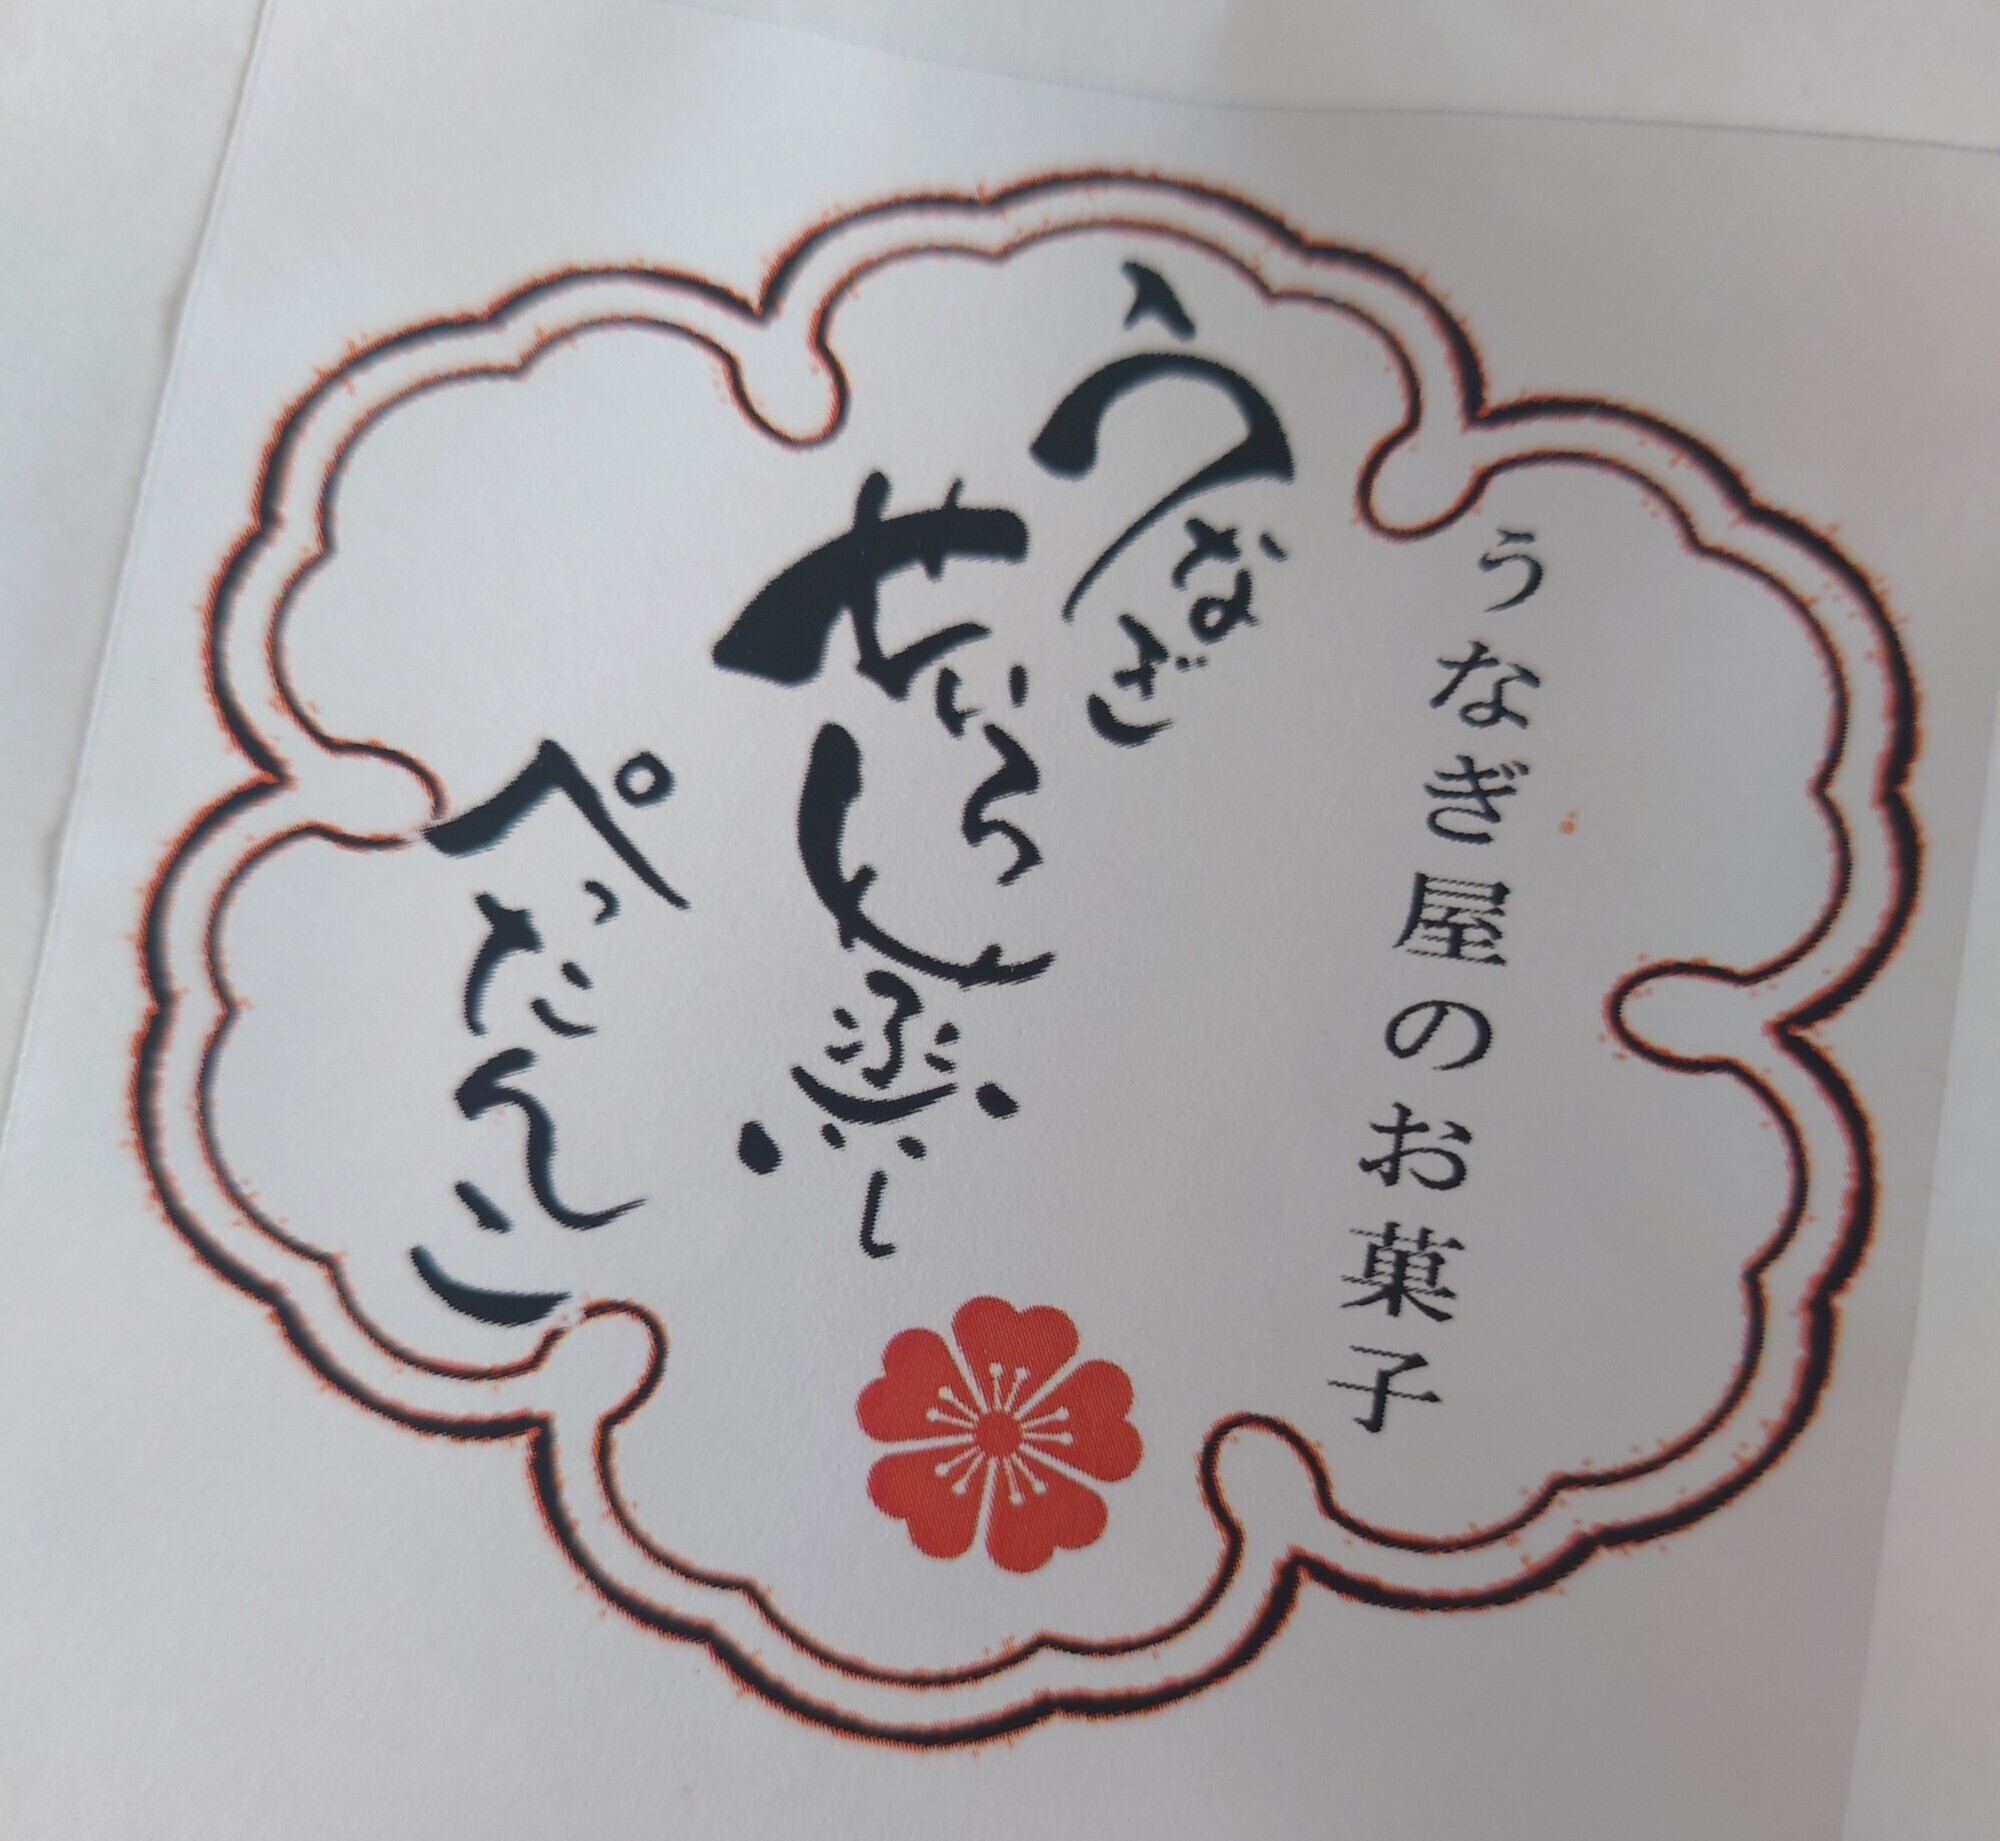 うなぎ屋のお菓子
うなぎ
せいろ蒸し
ぺったんこ